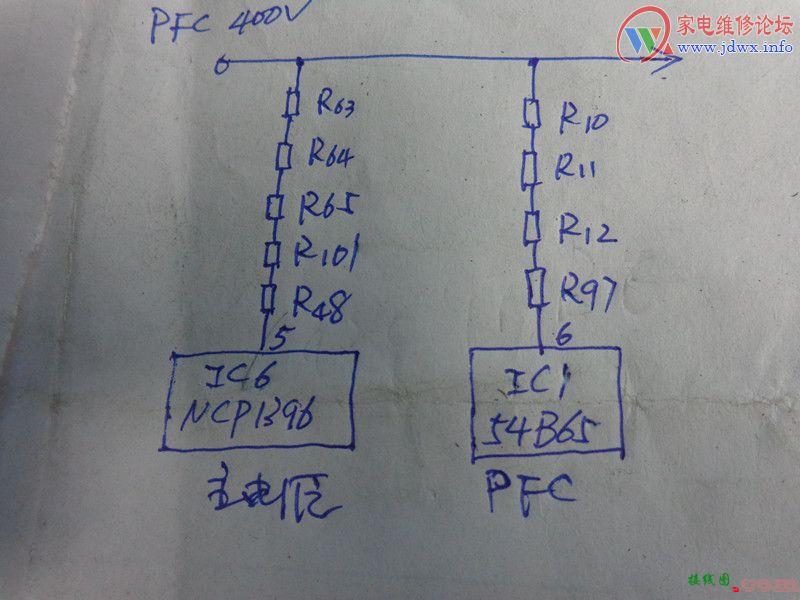 PFC 400V
家电维修论坛
www.jdwx.info
R63
R64
R65
R101
R48
5
R10
R11
R12
R97
6
IC6
NCP1396
主电源
IC1
54B65
PFC
接线图
.com